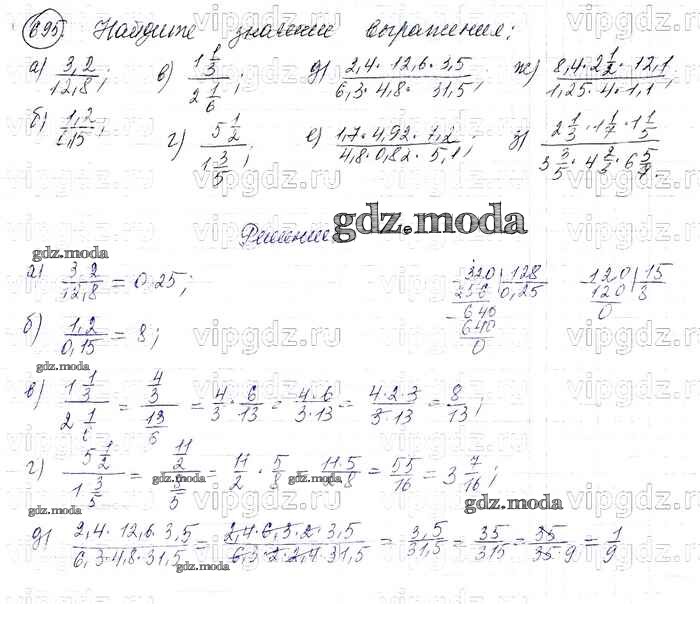 695. Найдите значение выражения:
а) 3,2/12,8; в) 1 1/3 / 2 1/6; д) 2,4 · 12,6 · 3,5 / 6,3 · 4,8 · 31,5; ж) 8,4 · 2 1/2 · 12,1 / 1,25 · 4 · 1,1;
б) 1,2/0,15; г) 5 1/2 / 1 3/5; е) 1,7 · 4,92 · 7,2 / 4,8 · 0,82 · 5,1; з) 2 1/3 · 1 1/7 · 1 1/5 / 3 3/5 · 4 2/3 · 6 5/7
Решение
gdz.moda
gdz.moda
а) 3,2/12,8 = 0,25; 320 | 128 120 | 15
256 0,25 120 8
640 0
640
0
б) 1,2/0,15 = 8;
gdz.moda
в) 1 1/3 / 2 1/6 = 4/3 / 13/6 = 4/3 · 6/13 = 4 · 6 / 3 · 13 = 4 · 2 · 3 / 3 · 13 = 8/13;
г) 5 1/2 / 1 3/5 = 11/2 / 8/5 = 11/2 · 5/8 = 11 · 5 / 2 · 8 = 55/16 = 3 7/16;
gdz.moda
gdz.moda
gdz.moda
д) 2,4 · 12,6 · 3,5 / 6,3 · 4,8 · 31,5 = 2,4 · 6,3 · 2 · 3,5 / 6,3 · 2 · 2,4 · 31,5 = 3,5/31,5 = 35/315 = 35 / 35 · 9 = 1/9
gdz.moda
vipgdz.ru